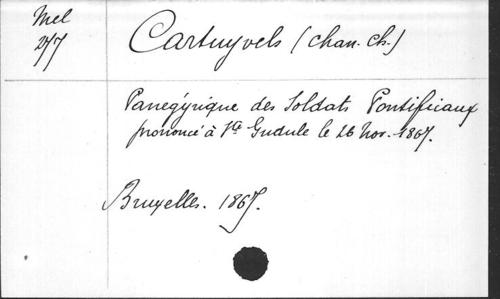 Mel
277
Cartuyvels (chan. ch.)
Panegÿrique des Soldats Pontificaux
prononcé à Ste Gudule le 26 Nov. 1867.
Bruxelles. 1867.